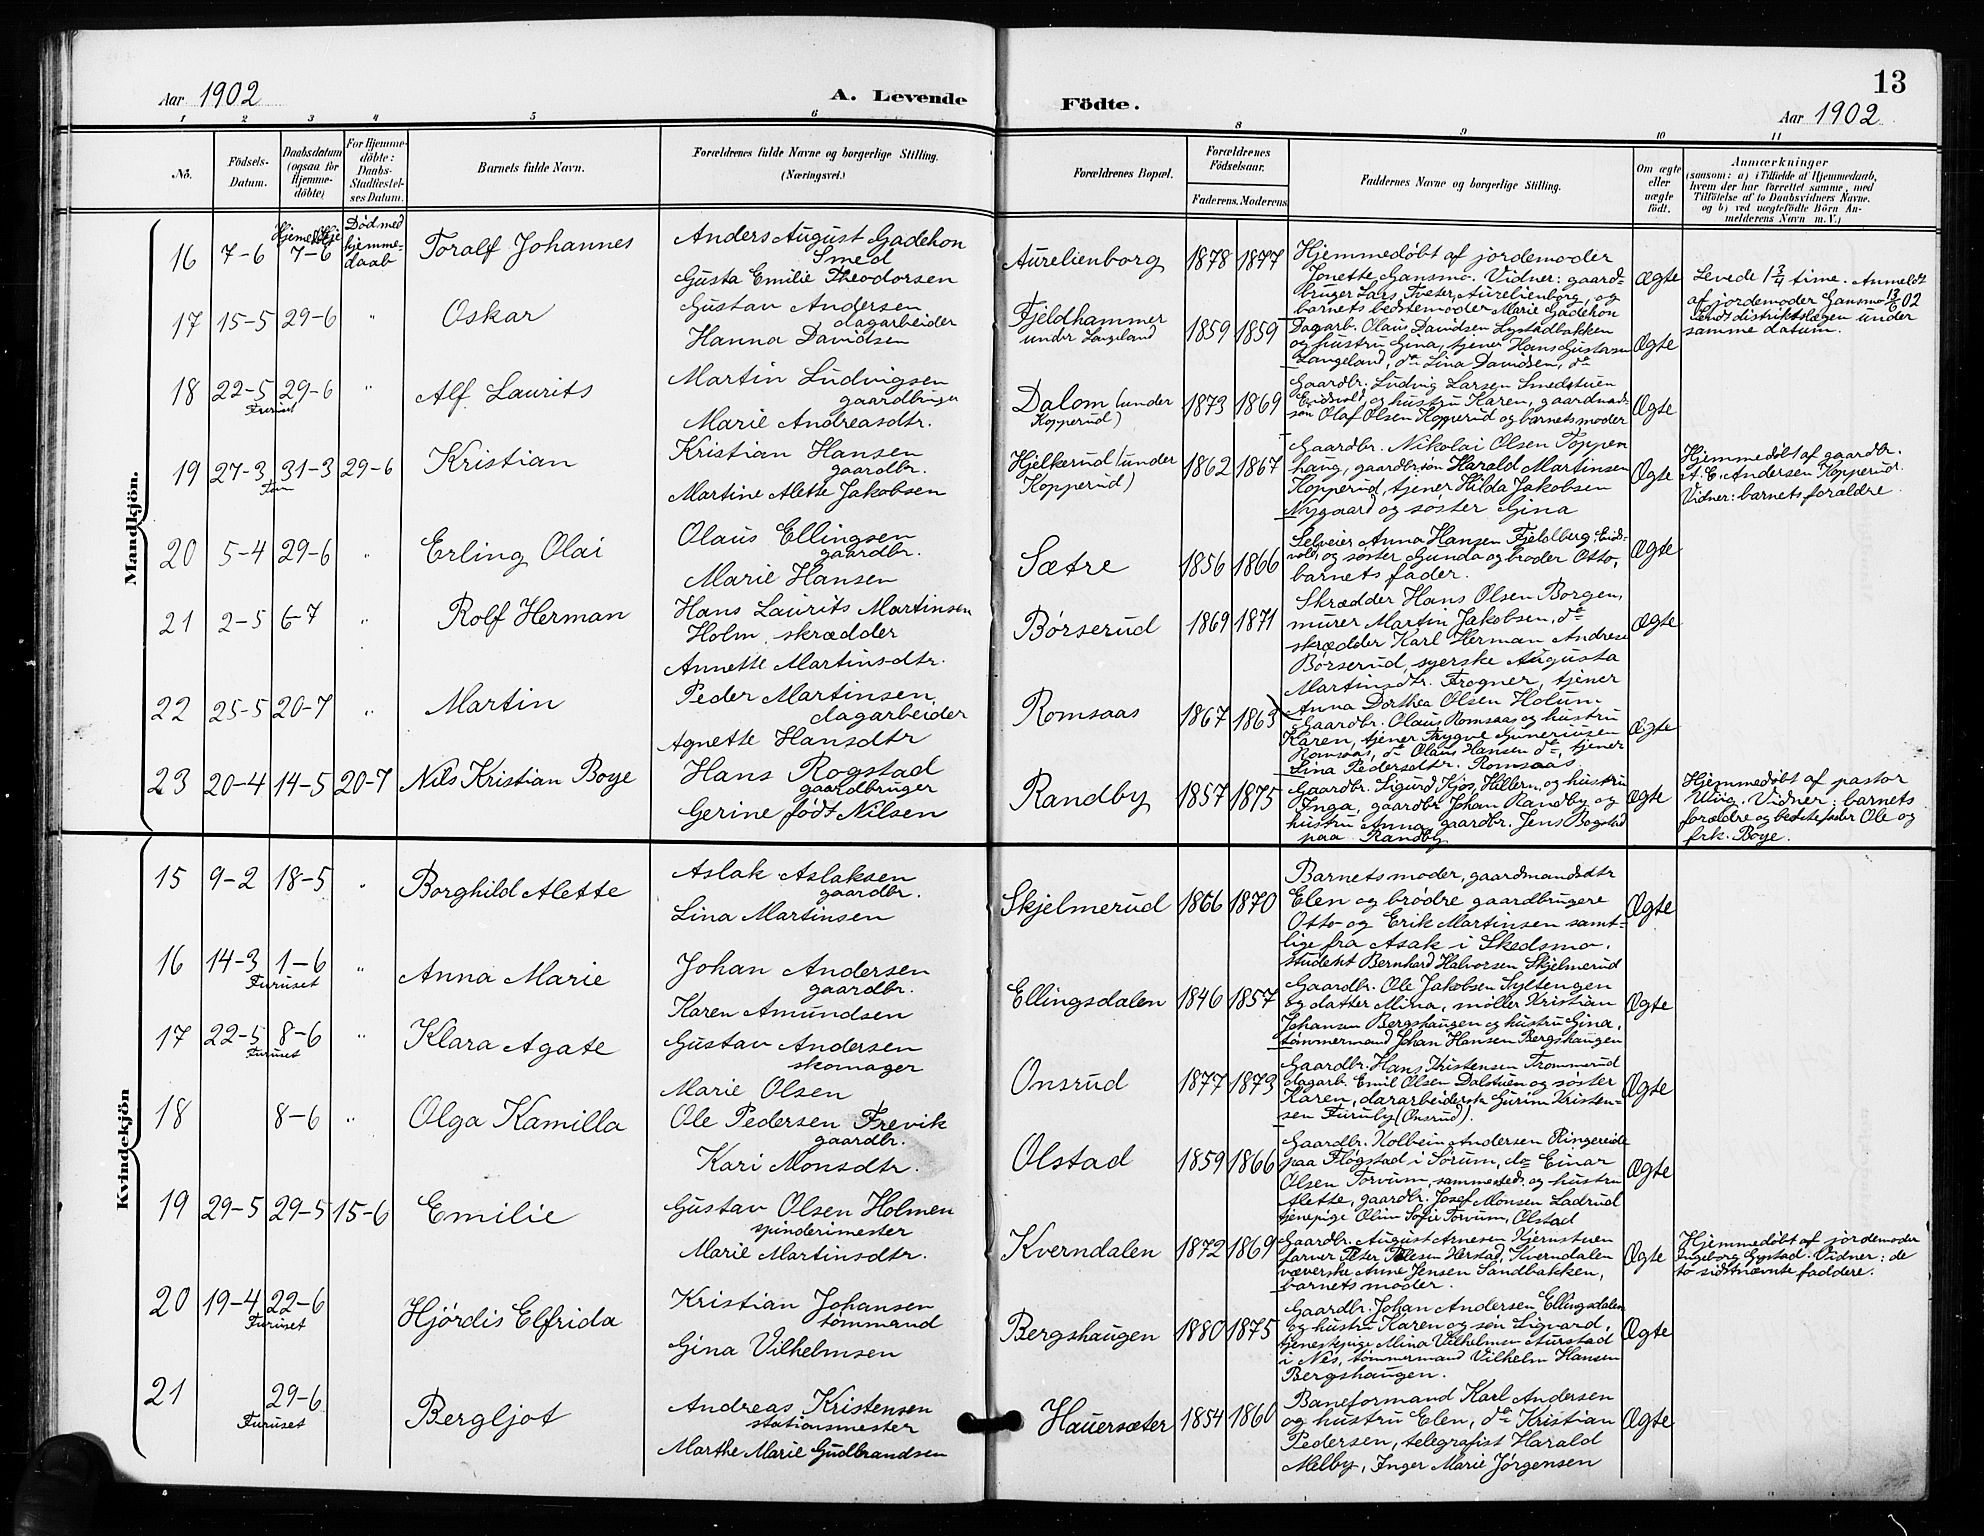 Aar 1902
A. Levende
Födte.
13
Aar 1902
1 2 3 4 5 6 8 9 10 11
No.
Födsels-
Datum.
Daabsdatum
(ogsaa for
Hjemme-
döbte)
For Hjemme-
döbte:
Daabs-
Stadfæstel-
ses Datum.
Barnets fulde Navn.
Forældrenes fulde Navne og borgerlige Stilling.
(Næringsvei.)
Forældrenes Bopæl.
Forældrenes
Födselsaar.
Faderens. Moderens
Faddernes Navne og borgerlige Stilling.
Om ægte
eller
uægte
födt.
Anmærkninger
(saasom: a) i Tilfælde af Hjemmedaab,
hvem der har forrettet samme, med
Tilföielse af to Daabsvidners Navne.
og b) ved uægtefödte Börn An-
melderens Navn m. V.)
Mandkjön.
16 7-6 7-6
Död med
hjemme-
daab
Toralf Johannes
Anders August Gadehon
Smed
Gusta Emilie Theodorsen
Aurelienborg 1878 1877
Hjemmedøbt af jordemoder
Jonette Gansmo. Vidner: gaard-
bruger Lars Tveter, Aurelienborg, og
barnets bedstemoder Marie Gadehon
Ægte
Levede 1 3/4 time. Anmeldt
af jordemoder Gansmo 13/6 02
Sendt distriktslægen under
samme datum.
17 15-5 29-6 "
Oskar
Gustav Andersen
dagarbeider
Hanna Davidsen
Fjeldhammer
under Langeland
1859 1859
Dagarb. Olaus Davidsen Lystadbakken
og hustru Gina, tjener Hans Gustavsen
Langeland, do Lina Davidsen, do
Ægte
18 22-5 29-6 "
Furuset
Alf Laurits
Martin Ludvigsen
gaardbruger
Marie Andreasdtr.
Dalom (under
Kopperud)
1873 1869
Gaardbr. Ludvig Larsen Smedstuen
Eidsvold, og hustru Karen, gaardmands-
søn Olaf Olsen Kopperud og barnets moder
Ægte
19 27-3 31-3 29-6
Kristian
Kristian Hansen
gaardbr.
Martine Alette Jakobsen
Hjelkerud (under
Kopperud)
1862 1867
Gaardbr. Nikolai Olsen Toppen
haug, gaardbr.søn Harald Martinsen
Kopperud, tjener Hilda Jakobsen
Nygaard og søster Gina
Ægte
Hjemmedøbt af gaardbr.
A. E. Andersen Kopperud.
Vidner: barnets forældre.
20 5-4 29-6 "
Erling Olai
Olaus Ellingsen
gaardbr.
Marie Hansen
Sætre 1856 1866
Selveier Anna Hansen Fjeldberg, Eids-
vold, og søster Gunda og broder Otto,
barnets fader.
Ægte
21 2-5 6-7 "
Rolf Herman
Hans Laurits Martinsen
Holm, skrædder
Annette Martinsdtr.
Børserud 1869 1871
Skrædder Hans Olsen Borgen,
murer Martin Jakobsen, do
skrædder Karl Herman Andresen
Børserud, syerske Augusta
Martinsdtr. Frogner, tjener
Anna Dorthea Olsen Holum.
Ægte
22 25-5 20-7 "
Martin
Peder Martinsen
dagarbeider
Agnette Hansdtr
Romsaas 1867 1863
Gaardbr. Olaus Romsaas og hustru
Karen, tjener Trygve Gunerusen
Romsaas, do Olaus Hansen do, tjener
Lina Pedersdtr. Romsaas.
Ægte
23 20-4 14-5 20-7
Nils Kristian Boye
Hans Rogstad
gaardbruger
Gerine født Nilsen
Randby 1857 1875
Gaardbr. Sigurd Kjos, Hillern, og hustru
Inga, gaardbr. Johan Randby og
hustru Anna, gaardbr. Jens Bogstad
paa Randby
Ægte
Hjemmedøbt af pastor
Wiig. Vidner: barnets
forældre og bedstefader Ole og
frk. Boye.
Kvindekjön
15 9-2 18-5 "
Borghild Alette
Aslak Aslaksen
gaardbr.
Lina Martinsen
Skjelmerud 1866 1870
Barnets moder, gaardmandsdtr
Elen og brødre gaardbrugere
Otto og Erik Martinsen samt-
lige fra Asak i Skedsmo.
student Bernhard Halvorsen Skjelmerud
Ægte
16 14-3 1-6 "
Furuset
Anna Marie
Johan Andersen
gaardbr.
Karen Amundsen
Ellingsdalen 1846 1857
Gaardbr. Ole Jakobsen Syltengen
og datter Mina, møller Kristian
Johansen Bergshaugen og hustru Gina,
tømmermand Johan Hansen Bergshaugen
Ægte
17 22-5 8-6 "
Furuset
Klara Agate
Gustav Andersen
skomager
Marie Olsen
Onsrud 1877 1873
Gaardbr. Hans Kristensen Trommerud
dagarb. Emil Olsen Dalstuen og søster
Karen, dararbeiderske Gurine Kristen-
sen Furuby (Onsrud).
Ægte
18 8-6 "
Olga Kamilla
Ole Pedersen Frevik
gaardbr.
Kari Monsdtr.
Olstad 1859 1866
Gaardbr. Kolbein Andersen Ringereide
paa Fløgstad i Sørum, do Einar
Olsen Torvum, sammested, og hustru
Alette, gaardbr. Josef Monsen Ladrud
tjenepige Olim Sofie Torvum, Olstad
Ægte
19 29-5 29-5 15-6
Emilie
Gustav Olsen Holmen
spinderimester
Marie Martinsdtr.
Kverndalen 1872 1869
Gaardbr. August Arnesen Kjernstuen
farver Peter Herstad, Kverndalen
væverske Anne Jensen Sandbakken,
barnets moder.
Ægte
Hjemmedøbt af jordemoder
Ingeborg Gystad. Vidner: de
to sidstnævnte faddere.
20 19-4 22-6
Furuset
Hjördis Elfrida
Kristian Johansen
tømmand
Gina Vilhelmsen
Bergshaugen 1880 1875
Gaardbr. Johan Andersen Ellingsdalen
og hustru Karen og søn Sigvard,
tjenestepige Mina Vilhelmsen Aurstad
i Nes, tømmermand Vilhelm Hansen
Bergshaugen.
Ægte
21 29-6
Furuset
Bergljot
Andreas Kristensen
stationsmester
Marthe Marie Gudbrandsen
Hauersæter 1854 1860
Baneformand Karl Andersen
og hustru Elen, do Kristian
Pedersen, telegrafist Harald
Melby, Inger Marie Jørgensen
Ægte